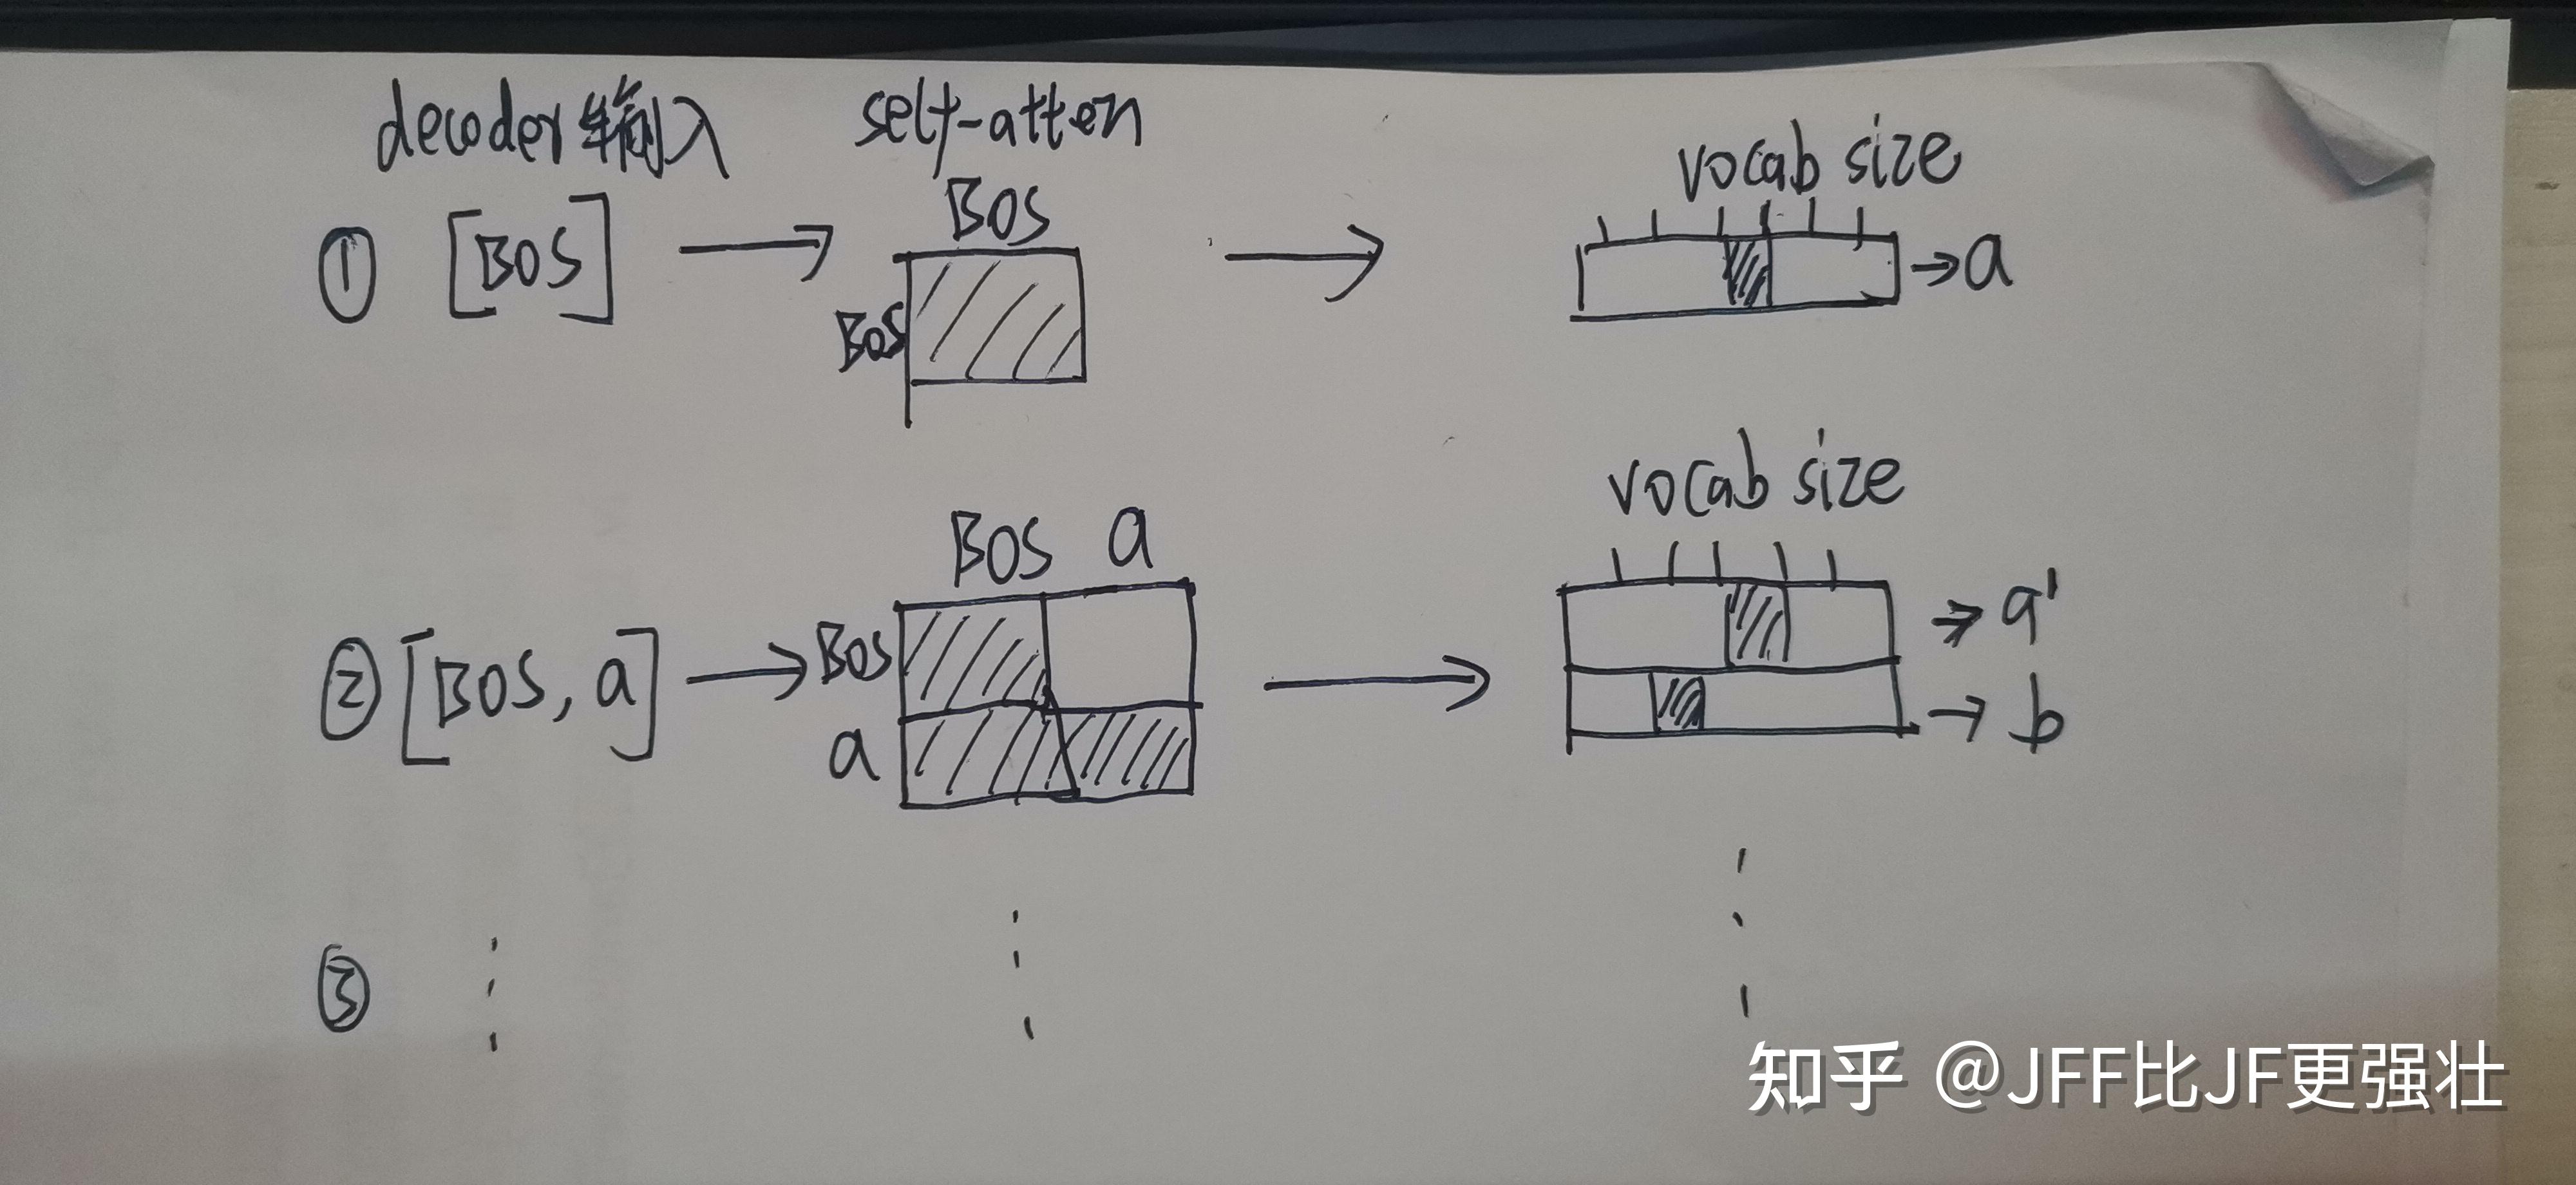 decoder输入 self-atten
vocab size
BOS
① [BOS] → → →a
BOS
vocab size
BOS a
BOS → a'
② [BOS, a] → →
a → b
③
知乎 @JFF比JF更强壮